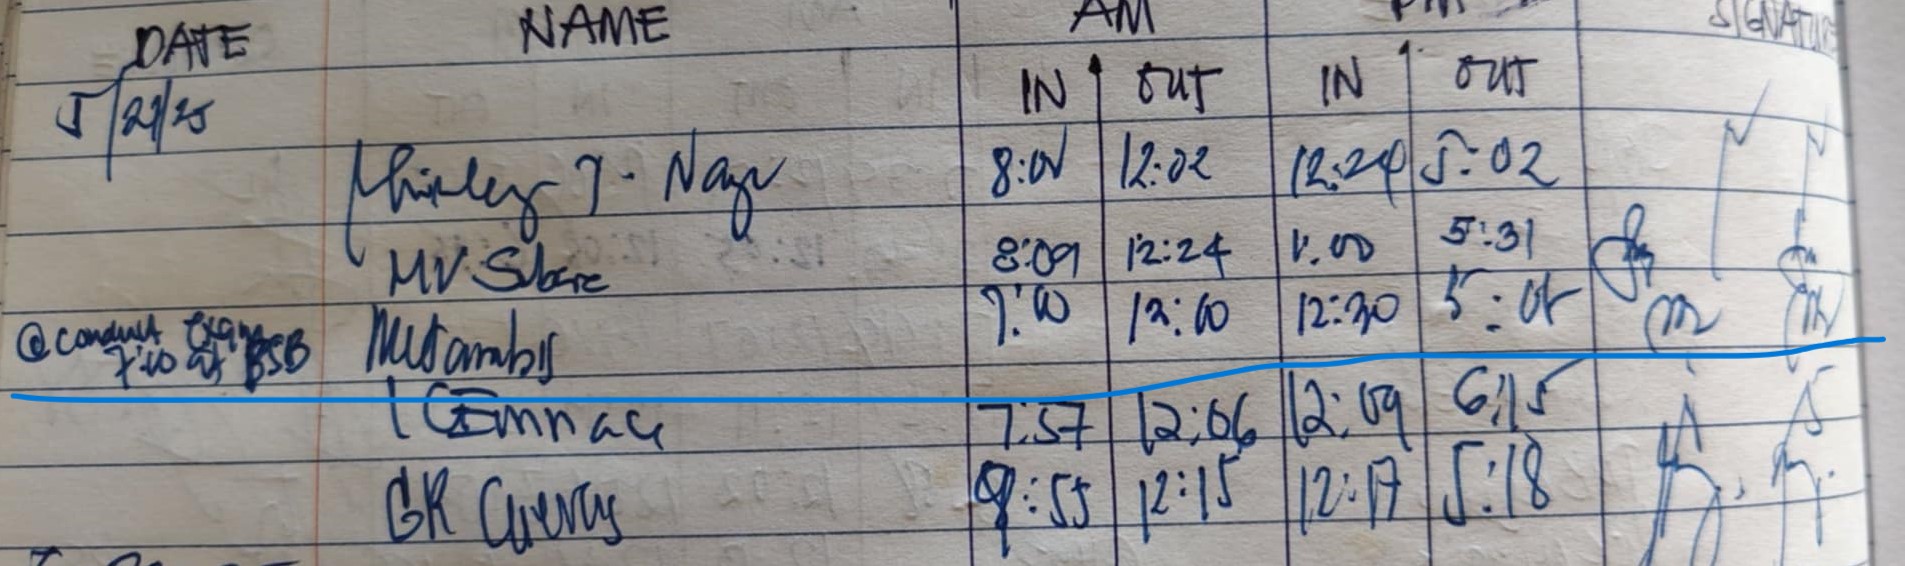 DATE NAME AM PM SIGNATURE
IN OUT IN OUT
5/21/25
Shirley J. 8:00 12:02 12:24 5:02
MV Subere 8:09 12:24 1:00 5:31
@ conduct exam 7:00 12:00 12:30 5:01
7:00 at BSB
7:57 12:06 12:09 6:15
GR Cuevas :55 12:15 12:17 5:18